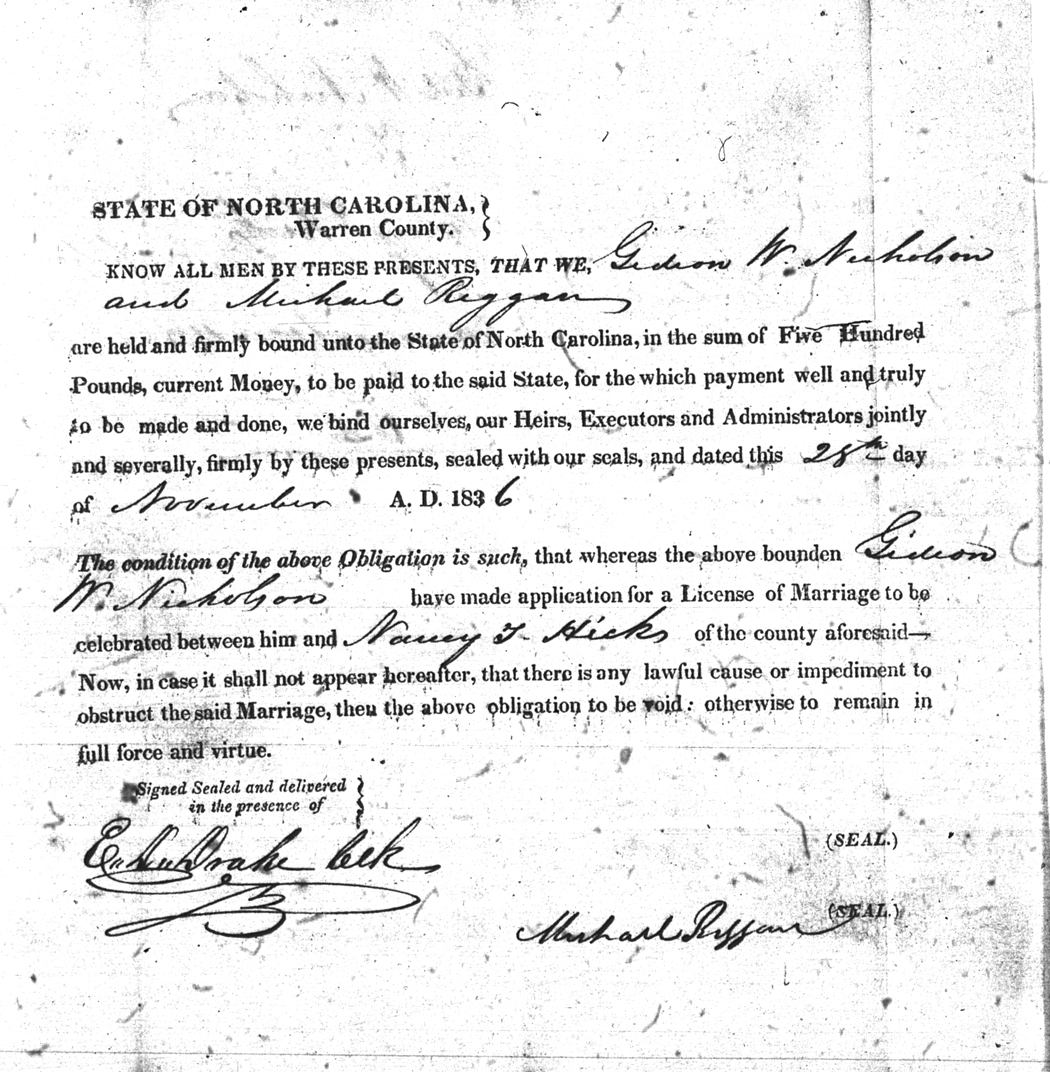 STATE OF NORTH CAROLINA,
Warren County.
KNOW ALL MEN BY THESE PRESENTS, THAT WE, Gideon W. Nicholson
and Michael Riggan
are held and firmly bound unto the State of North Carolina, in the sum of Five Hundred
Pounds, current Money, to be paid to the said State, for the which payment well and truly
to be made and done, we bind ourselves, our Heirs, Executors and Administrators jointly
and severally, firmly by these presents, sealed with our seals, and dated this 28th day
of November A. D. 1836
The condition of the above Obligation is such, that whereas the above bounden Gideon
W. Nicholson have made application for a License of Marriage to be
celebrated between him and Nancy T. Hicks of the county aforesaid—
Now, in case it shall not appear hereafter, that there is any lawful cause or impediment to
obstruct the said Marriage, then the above obligation to be void: otherwise to remain in
full force and virtue.
Signed Sealed and delivered
in the presence of
Drake Clk
(SEAL.)
Michael Riggan (SEAL.)